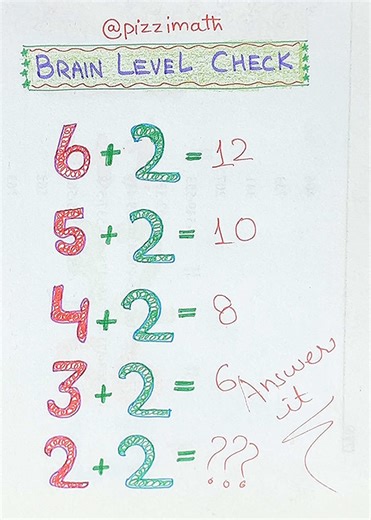 @pizzimath
BRAIN LEVEL CHECK
6 + 2 = 12
5 + 2 = 10
4 + 2 = 8
3 + 2 = 6
2 + 2 = ???
Answer
it